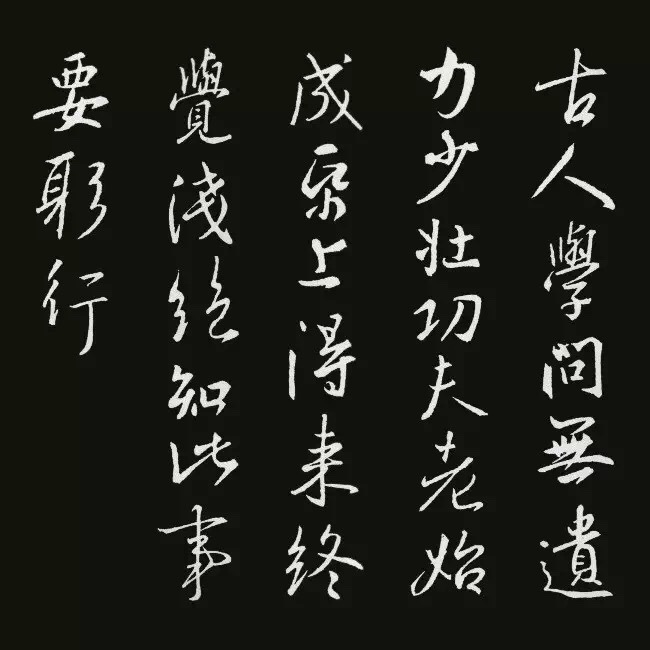 古人學問無遺
力少壯功夫老始
成帋上得来终
覺淺絶知此事
要躬行